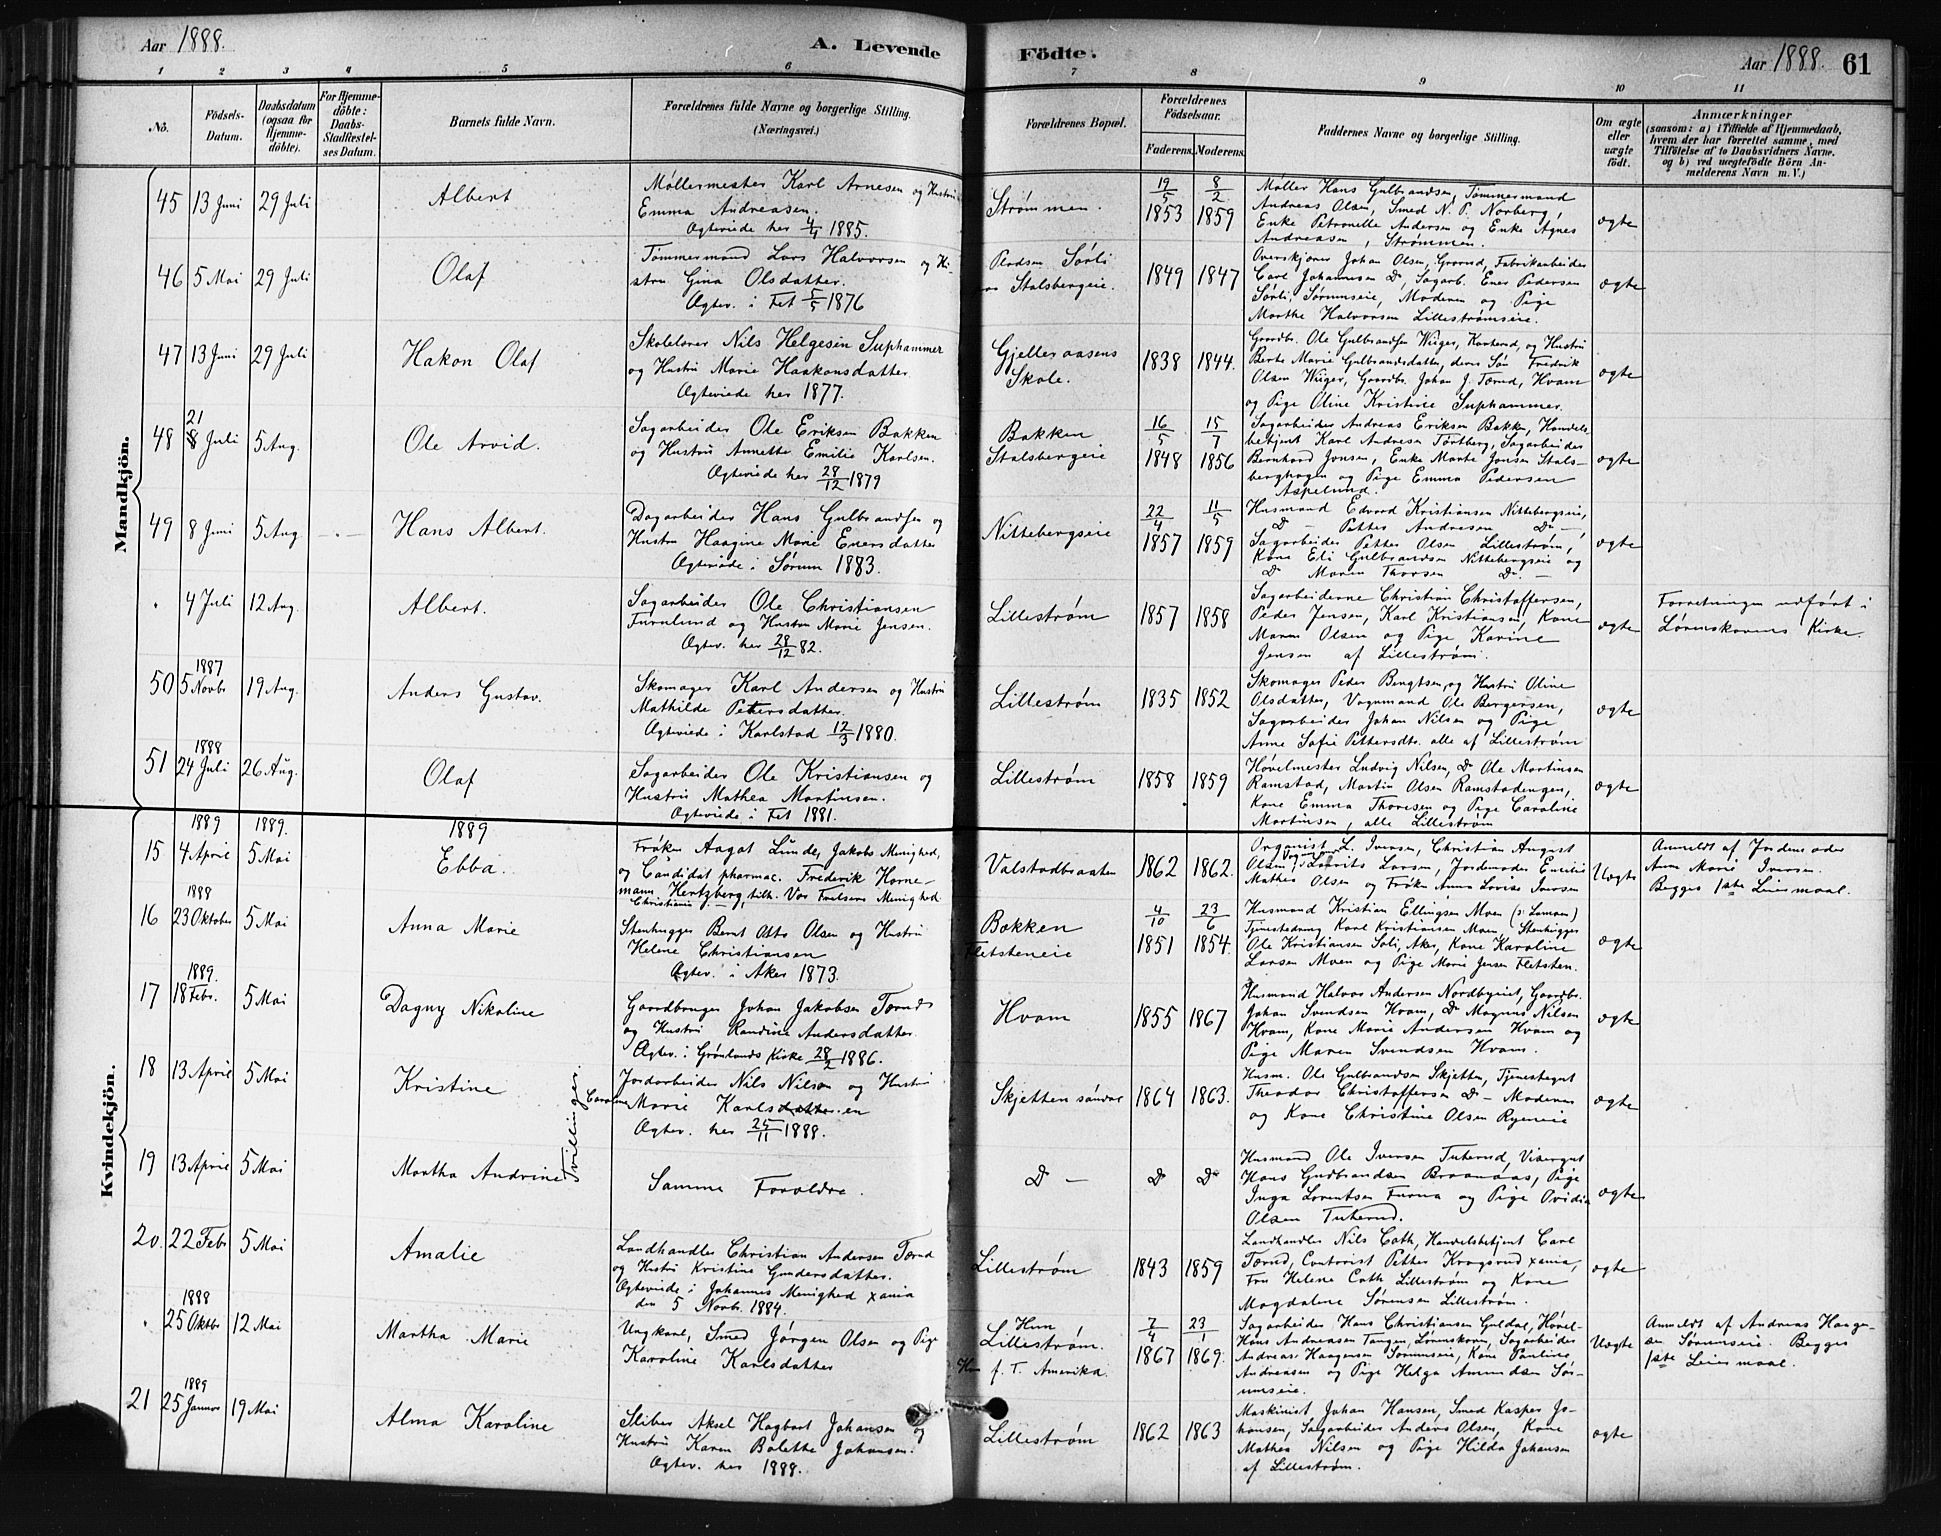 Aar 1888.
A. Levende Födte.
Aar 1888. 61
1 2 3 4 5 6 7 8 9 10 11
Nö.
Födsels-Datum.
Daabsdatum (ogsaa for Hjemmedöbte).
For Hjemmedöbte: Daabs-Stadfæstelses Datum.
Barnets fulde Navn.
Forældrenes fulde Navne og borgerlige Stilling. (Næringsvei.)
Forældrenes Bopæl.
Forældrenes Födselsaar.
Faderens. Moderens.
Faddernes Navne og borgerlige Stilling.
Om ægte eller uægte födt.
Anmærkninger
(saasom: a) i Tilfælde af Hjemmedaab, hvem der har forrettet samme, med Tilföielse af to Daabsvidners Navne, og b) ved uægtefödte Börn Anmelderens Navn m. V.)
Mandkjön.
45 13 Juni 29 Juli Albert
Møllermester Karl Arnesen og Hustru
Emma Andreasen.
Ægteviede her 4/4 1885.
Strømmen. 19/5 1853 8/2 1859
Møller Hans Gulbrandsen, Tømmermand
Andreas Olsen, Smed N. P. Norberg,
Enke Petronelle Andersen og Enke Agnes
Andreasen, Strømmen.
ægte
46 5 Mai 29 Juli Olaf
Tømmermand Lars Halvorsen og Hu-
stru Gina Olsdatter.
Ægtev. i Fet 5/5 1876
Stalsbergeie 1849 1847
Overskjærer Johan Olsen, Fabrikarbeider
Carl Johannesen Do, Sagarb. Ener Pedersen
Sørli, Sørumseie, Moderen og Pige
Marthe Halvorsen Lillestrømseie.
ægte
47 13 Juni 29 Juli Hakon Olaf
Skolelærer Nils Helgesen Suphammer
og Hustru Marie Haakonsdatter
Ægteviede her 1877.
Gjelleraasens
Skole. 1838 1844.
Gaardbr. Ole Gulbrandsen Wiger, og Hustru
Berte Marie Gulbrandsdatter, deres Søn Fredrik
Olsen Wiger, Gaardbr. Johan J. Tærud, Hvam
og Pige Oline Kristine Suphammer.
ægte
48 21 8 Juli 5 Aug. Ole Arvid.
Sagarbeider Ole Eriksen Bakken
og Hustru Annette Emilie Karlsen.
Ægteviede her 28/12 1879
Bakken
Stalsbergeie 16/5 1848 15/7 1856
Sagarbeider Andreas Eriksen Bakken, Handels
betjent Karl Andresen Tortberg, Sagarbeider
Bernhard Jonsen, Enke Marte Jonsen Stals-
berghagen og Pige Emma Pedersen
Aspelund.
ægte
49 8 Juni 5 Aug - . - Hans Albert.
Dagarbeider Hans Gulbrandsen og
Hustru Haagine Marie Enersdatter
Ægteviede i Sørum 1883.
Nittebergseie 22/4 1857 11/5 1859
Husmand Edvard Kristiansen Nittebergseie,
Do - Petter Andresen Do -
Sagarbeider Petter Olsen Lillestrøm,
Kone Eli Gulbrandsen Nittebergseie og
Do Maren Thorsen Do. -
ægte
. 4 Juli 12 Aug. Albert.
Sagarbeider Ole Christiansen
Furulund og Hustru Marie Jensen.
Ægtev. her 28/12 82.
Lillestrøm 1857 1858
Sagarbeiderne Christian Christoffersen,
Peder Jensen, Karl Kristiansen, Kone
Maren Olsen og Pige Karine
Jensen af Lillestrøm.
ægte
Forretningen udført i
Lørenskovens Kirke.
50 1887 5 Novbr 19 Aug. Anders Gustav.
Skomager Karl Andersen og Hustru
Mathilde Pettersdatter.
Ægteviede i Karlstad 12/3 1880.
Lillestrøm 1835 1852
Skomager Peder Bengtsen, og Hustru Oline
Olsdatter, Vognmand Ole Bergersen,
Sagarbeider Johan Nilsen og Pige
Anne Sofie Pettersdtr. alle af Lillestrøm
ægte
51 1888 24 Juli 26 Aug. Olaf
Sagarbeider Ole Kristiansen og
Hustru Mathea Martinsen.
Ægteviede i Fet 1881.
Lillestrøm 1858 1859
Høvelmester Ludvig Nilsen, Do Ole Martinsen
Ramstad, Martin Olsen Ramstadengen,
Kone Emma Thoresen og Pige Caroline
Martinsen, alle Lillestrøm
ægte
Kvindekjön.
15 1889 4 April 1889. 5 Mai 1889 Ebba.
Frøken Aagot Lunde, Jakobs Menighed,
og Candidat pharmac. Frederik Horne-
mann Hertzberg, tilh. Vor Frelsers Menighed
Christiania
Valstadbraaten 1862 1862.
Organist L. Iversen, Christian August
Olsen, Laurits Larsen, Jordemoder Emilie
Mathea Olsen og Frøken Anna Lovise Iversen
Uægte
Anmeldt af Jordemoder
Anne Marie Iversen.
Begges 1ste Leiermaal.
16 1888 23 Oktober 5 Mai Anna Marie
Stenhugger Bernt Otto Olsen og Hustru
Helene Christiansen
Ægtev. i Aker 1873.
Bakken
Fletsteneie 4/10 1851 23/6 1854.
Husmand Kristian Ellingsen Moen
Tjenestedreng Karl Kristiansen Moen, Stenhugger
Ole Kristiansen Soli, Aker, Kone Karoline
Larsen Moen og Pige Marie Jensen Fletsten.
ægte
17 1889. 18 Febr. 5 Mai Dagny Nikoline
Gaardbruger Johan Jakobsen Tærud
og Hustru Randine Andersdatter.
Ægtev. i Grønlands Kirke 28/2 1886.
Hvam 1855 1867
Husmand Halvor Andersen Nordbyeiet, Gaardbr.
Johan Svendsen Hvam, Do Magnus Nilsen
Hvam, Kone Marie Andersen Hvam og
Pige Maren Svendsen Hvam.
ægte
18 13 April 5 Mai Kristine
Tvillinger.
Jordarbeider Nils Nilsen og Hustru
Caroline Marie Karlsdatter en
Ægtev. her 25/11 1888.
Skjetten søndre 1864 1863.
Husm. Ole Gulbrandsen Skjetten, Tjenestegut
Theodor Christoffersen Do - Moderen
og Kone Christine Olsen Ryeneie
ægte
19 13 April 5 Mai Martha Andrine
Samme Forældre.
Do - Do Do
Husmand Ole Iversen Tuterud, Visergut
Hans Gudbrandsen Braanaas, Pige
Inga Lorentsen Furua og Pige Ovidia
Olsen Tuterud.
ægte
20. 22 Febr 5 Mai Amalie
Landhandler Christian Andersen Tærud
og Hustru Kristine Gundersdatter.
Ægteviede i Johannes Menighed Xania
den 5 Novbr. 1884.
Lillestrøm 1843 1859
Landhandler Nils Coth, Handelsbetjent Carl
Tærud, Contorist Petter Krogsrud Xania,
Fru Helene Coth Lillestrøm og Kone
Magdalene Sørensen Lillestrøm.
ægte
. 1888 25 Oktbr 12 Mai Martha Marie
Ungkarl, Smed Jørgen Olsen og Pige
Karoline Karlsdatter
Hun
Lillestrøm.
Han f. T. Amerika. 7/4 1867 23/1 1869.
Sagarbeider Hans Christiansen Guldal, Høvel-
Hans Andreasen Tangen, Lørenskoven, Sagarbeider
Andreas Haagensen Sørumseie, Kone Pauline
Andreasen og Pige Helga Amundsen Sør-
umseie.
Uægte
Anmeldt af Andreas Haagen-
sen Sørumseie. Begges
1ste Leiermaal.
21 1889 25 Januar 19 Mai Alma Karoline
Sliber Aksel Hagbart Johansen og
Hustru Karen Bolette Johansen.
Ægtev. her 1888.
Lillestrøm 1862 1863
Maskinist Johan Hansen, Smed Kasper Jo-
hansen, Sagarbeider Anders Olsen, Kone
Mathea Nilsen og Pige Hilda Johansen
af Lillestrøm.
ægte